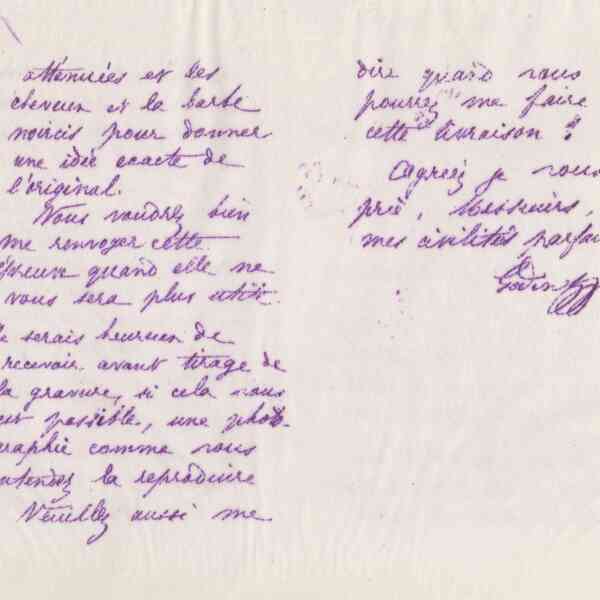 atténuées et les
cheveux et la barbe
noircis pour donner
une idée exacte de
l'original.
Vous voudrez bien
me renvoyer cette
épreuve quand elle ne
vous sera plus utile.
Je serais heureux de
recevoir avant tirage de
la gravure, si cela vous
est possible, une photo-
graphie comme vous
entendez la reproduire
Veuillez aussi me
dire quand vous
pourrez me faire
cette livraison ?
Agréez je vous
prie, Messieurs,
mes civilités parfai
Godin